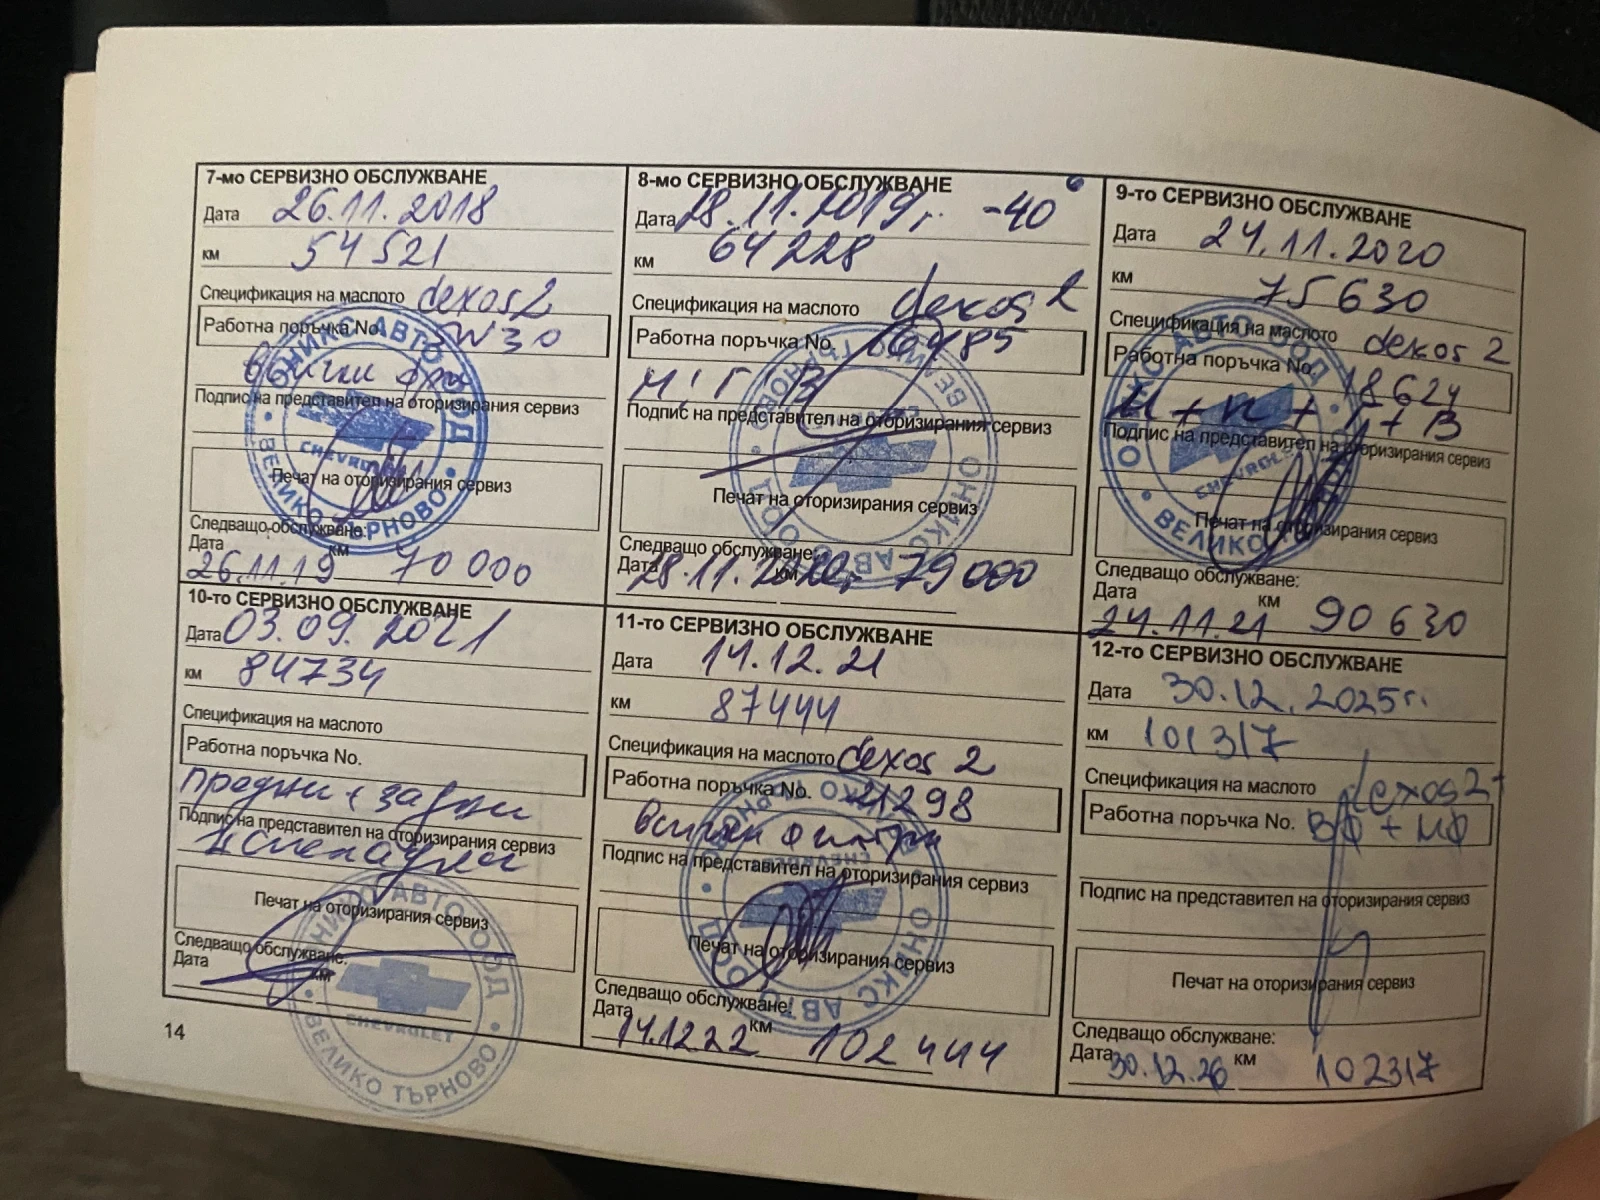 7-мо СЕРВИЗНО ОБСЛУЖВАНЕ
Дата 26.11.2018
км 54521
Спецификация на маслото dexos2
Работна поръчка No. 5W30
всички фри
Подпис на представител на оторизирания сервиз
Печат на оторизирания сервиз
ОНИКС АВТО ООД
CHEVROLET
ВЕЛИКО ТЪРНОВО
Следващо обслужване:
Дата км
26.11.19 70 000
8-мо СЕРВИЗНО ОБСЛУЖВАНЕ
Дата 28.11.2019г. -40
км 64228
Спецификация на маслото dexos 2
Работна поръчка No.
М, Г, В
Подпис на представител на оторизирания сервиз
Печат на оторизирания сервиз
ОНИКС АВТО ООД
ВЕЛИКО ТЪРНОВО
Следващо обслужване:
Дата км
28.11. 79 000
9-то СЕРВИЗНО ОБСЛУЖВАНЕ
Дата 24.11.2020
км 75630
Спецификация на маслото dexos 2
Работна поръчка No. 18624
М + К + Г + В
Подпис на представител на оторизирания сервиз
Печат на оторизирания сервиз
ОНИКС АВТО ООД
CHEVROLET
ВЕЛИКО
Следващо обслужване:
Дата км
24.11.21 90 630
10-то СЕРВИЗНО ОБСЛУЖВАНЕ
Дата 03.09.2021
км 84734
Спецификация на маслото
Работна поръчка No.
предни + задни
Подпис на представител на оторизирания сервиз
накладки
Печат на оторизирания сервиз
Следващо обслужване:
Дата км
ОНИКС АВТО ООД
CHEVROLET
ВЕЛИКО ТЪРНОВО
11-то СЕРВИЗНО ОБСЛУЖВАНЕ
Дата 14.12.21
км 87444
Спецификация на маслото dexos 2
Работна поръчка No. 21298
всички филтри
Подпис на представител на оторизирания сервиз
CHEVROLET
Печат на оторизирания сервиз
ОНИКС АВТО ООД
Следващо обслужване:
Дата км
14.12.22 102444
12-то СЕРВИЗНО ОБСЛУЖВАНЕ
Дата 30.12.2025г.
км 101317
Спецификация на маслото dexos2
Работна поръчка No. ВФ + МФ
Подпис на представител на оторизирания сервиз
Печат на оторизирания сервиз
Следващо обслужване:
Дата 30.12.26 км 102317
14